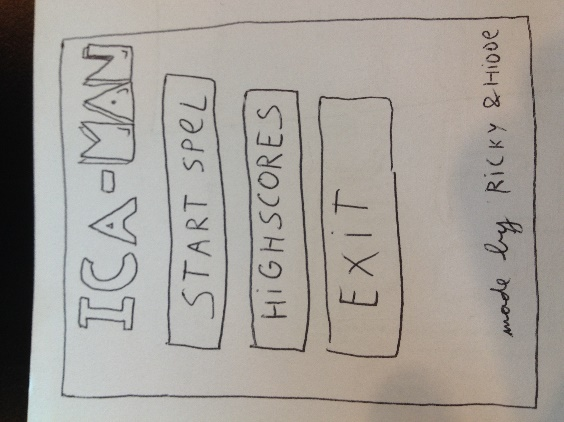 ICA-MAN
START SPEL
HiGHSCORES
EXiT
made by RiCKY & HiDDE